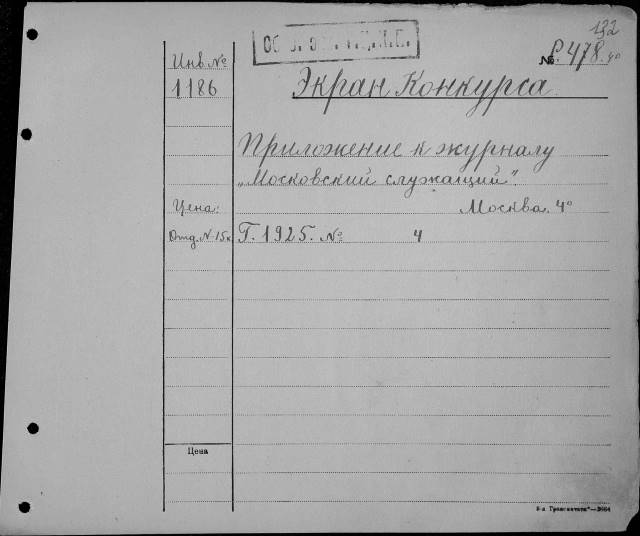 132
№ Р478.40
Инв №
1186
Экран Конкурса.
Приложение к журналу
„Московский служащий”.
Цена:
Москва. 4°
Отд. № 15к
Г. 1925. № 4
Цена